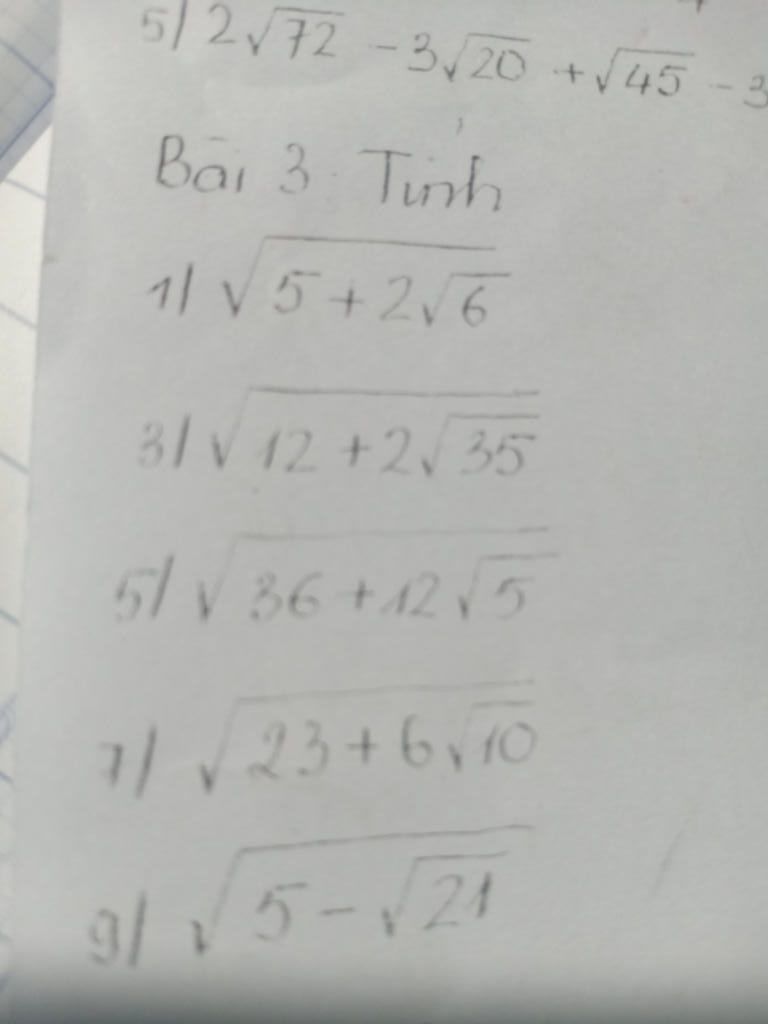 5/ 2√72 - 3√20 + √45 - 3
Bài 3: Tính
1/ √(5 + 2√6)
3/ √(12 + 2√35)
5/ √(36 + 12√5)
7/ √(23 + 6√10)
9/ √(5 - √21)